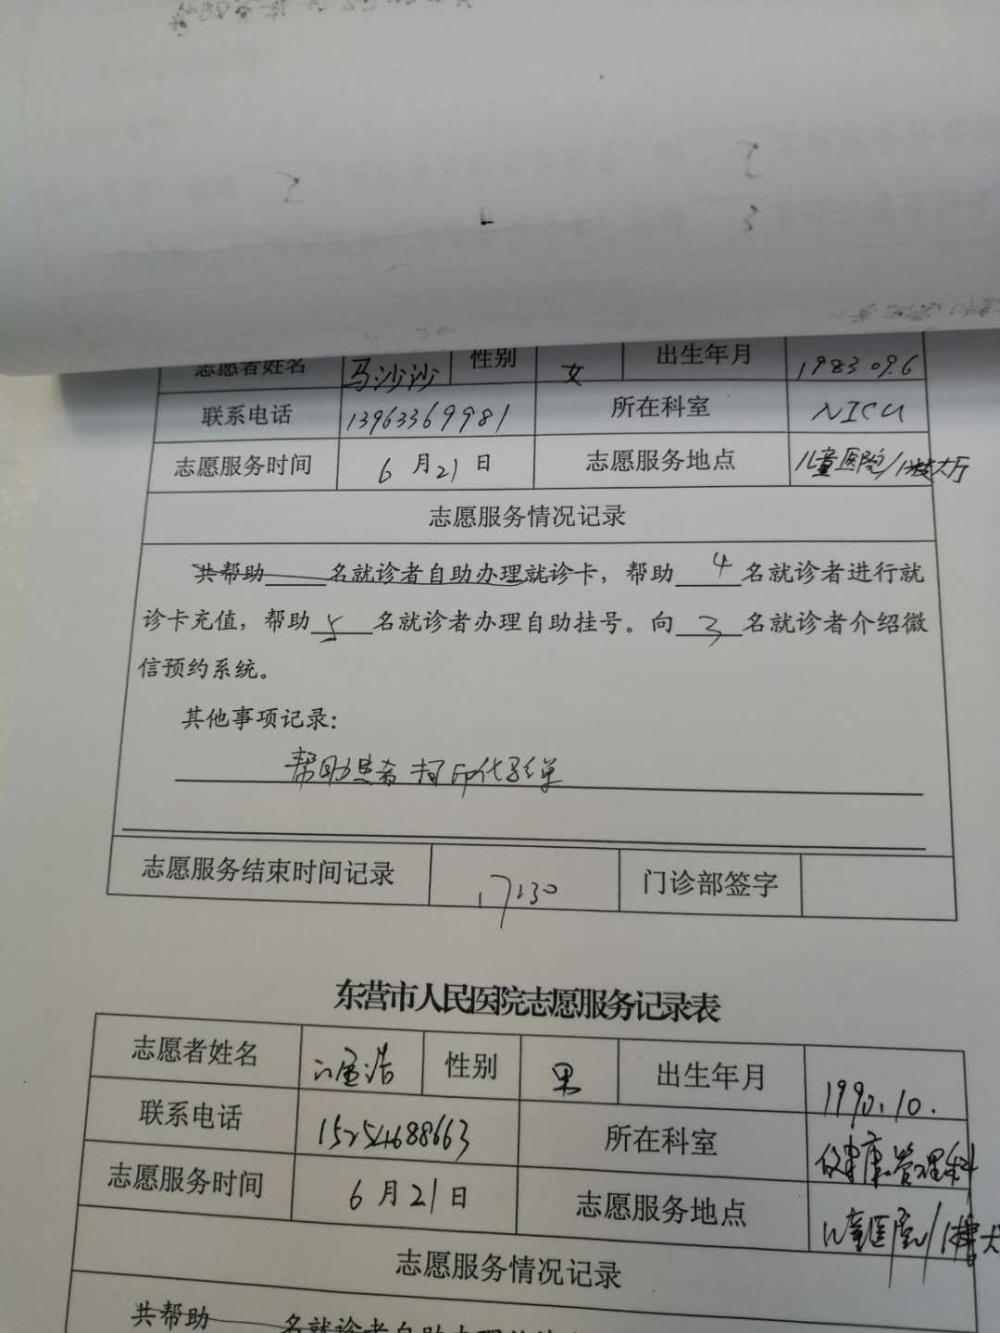 志愿者姓名 马沙沙 性别 女 出生年月 1983 09.6
联系电话 13963369981 所在科室 NICU
志愿服务时间 6月21日 志愿服务地点 儿童医院/1楼大厅
志愿服务情况记录
共帮助 名就诊者自助办理就诊卡，帮助 4 名就诊者进行就
诊卡充值，帮助 5 名就诊者办理自助挂号。向 3 名就诊者介绍微
信预约系统。
其他事项记录：
帮助患者打印化验单
志愿服务结束时间记录 17:30 门诊部签字
东营市人民医院志愿服务记录表
志愿者姓名 浩 性别 男 出生年月 1990.10.
联系电话 15254688663 所在科室 健康管理科
志愿服务时间 6月21日 志愿服务地点 儿童医院/1楼大
志愿服务情况记录
共帮助